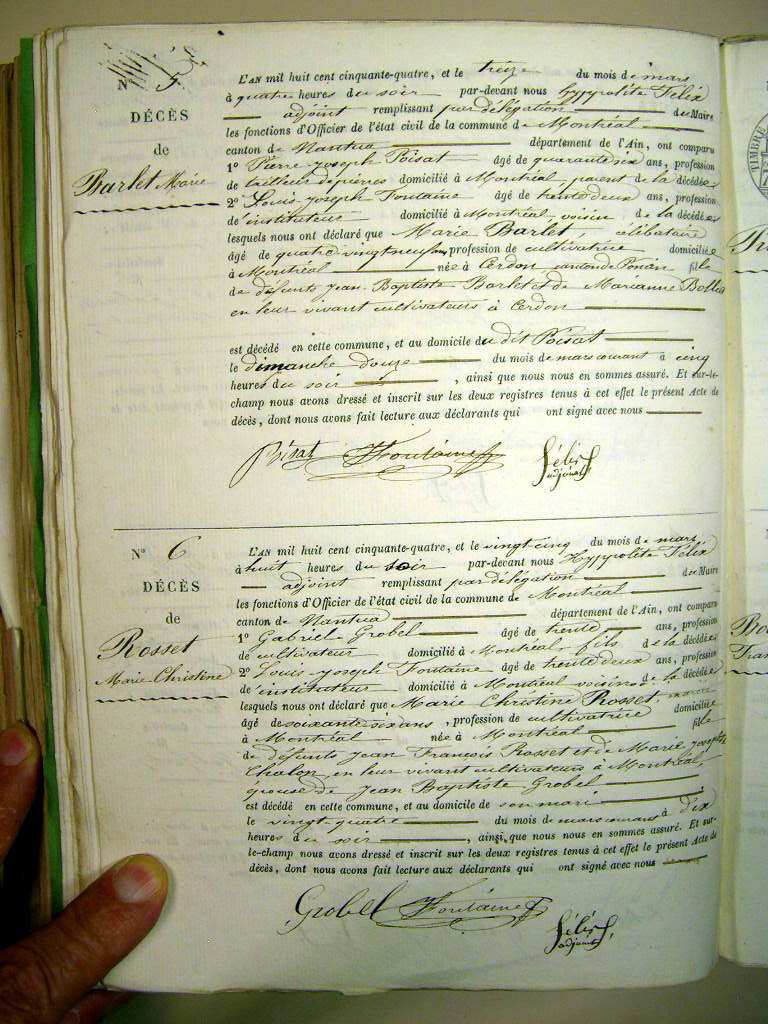 N° 5
DÉCÈS
de
Barlet Marie
L'AN mil huit cent cinquante-quatre, et le treize du mois de mars
à quatre heures du soir par-devant nous Hyppolite Félix
adjoint remplissant par délégation de Maire
les fonctions d'Officier de l'état civil de la commune de Montréal
canton de Nantua département de l'Ain, ont comparu
1° Pierre Joseph Poisat âgé de quarante six ans, profession
de tailleur de pierres domicilié à Montréal parent de la décédée
2° Louis Joseph Fontaine âgé de trente deux ans, profession
de instituteur domicilié à Montréal voisin de la décédée
lesquels nous ont déclaré que Marie Barlet, célibataire
âgé de quatre vingt neuf ans profession de cultivatrice domiciliée
à Montréal née à Cerdon canton de Poncin fille
de défunts Jean Baptiste Barlet et de Marianne
en leur vivant cultivateurs à Cerdon
est décédé en cette commune, et au domicile du dit Poisat
le dimanche douze du mois de mars courant à cinq
heures du soir, ainsi que nous nous en sommes assuré. Et sur-le-
champ nous avons dressé et inscrit sur les deux registres tenus à cet effet le présent Acte de
décès, dont nous avons fait lecture aux déclarants qui ont signé avec nous
Poisat Fontaine Félix
adjoint
N° 6
DÉCÈS
de
Rosset
Marie-Christine
L'AN mil huit cent cinquante-quatre, et le vingt cinq du mois de mars
à huit heures du soir par-devant nous Hyppolite Félix
adjoint remplissant par délégation de Maire
les fonctions d'Officier de l'état civil de la commune de Montréal
canton de Nantua département de l'Ain, ont comparu
1° Gabriel Grobel âgé de trente ans, profession
de cultivateur domicilié à Montréal, fils de la décédée
2° Louis Joseph Fontaine âgé de trente deux ans, profession
de instituteur domicilié à Montréal voisin de la décédée
lesquels nous ont déclaré que Marie Christine Rosset, mariée
âgé de soixante six ans, profession de cultivatrice domiciliée
à Montréal née à Montréal fille
de défunts Jean François Rosset et de Marie Josephte
Chalon, en leur vivant cultivateurs à Montréal,
épouse de Jean Baptiste Grobel
est décédé en cette commune, et au domicile de son mari
le vingt-quatre du mois de mars courant à dix
heures du soir, ainsi que nous nous en sommes assuré. Et sur-
le-champ nous avons dressé et inscrit sur les deux registres tenus à cet effet le présent Acte de
décès, dont nous avons fait lecture aux déclarants qui ont signé avec nous
Grobel Fontaine Félix
adjoint
TIMBRE